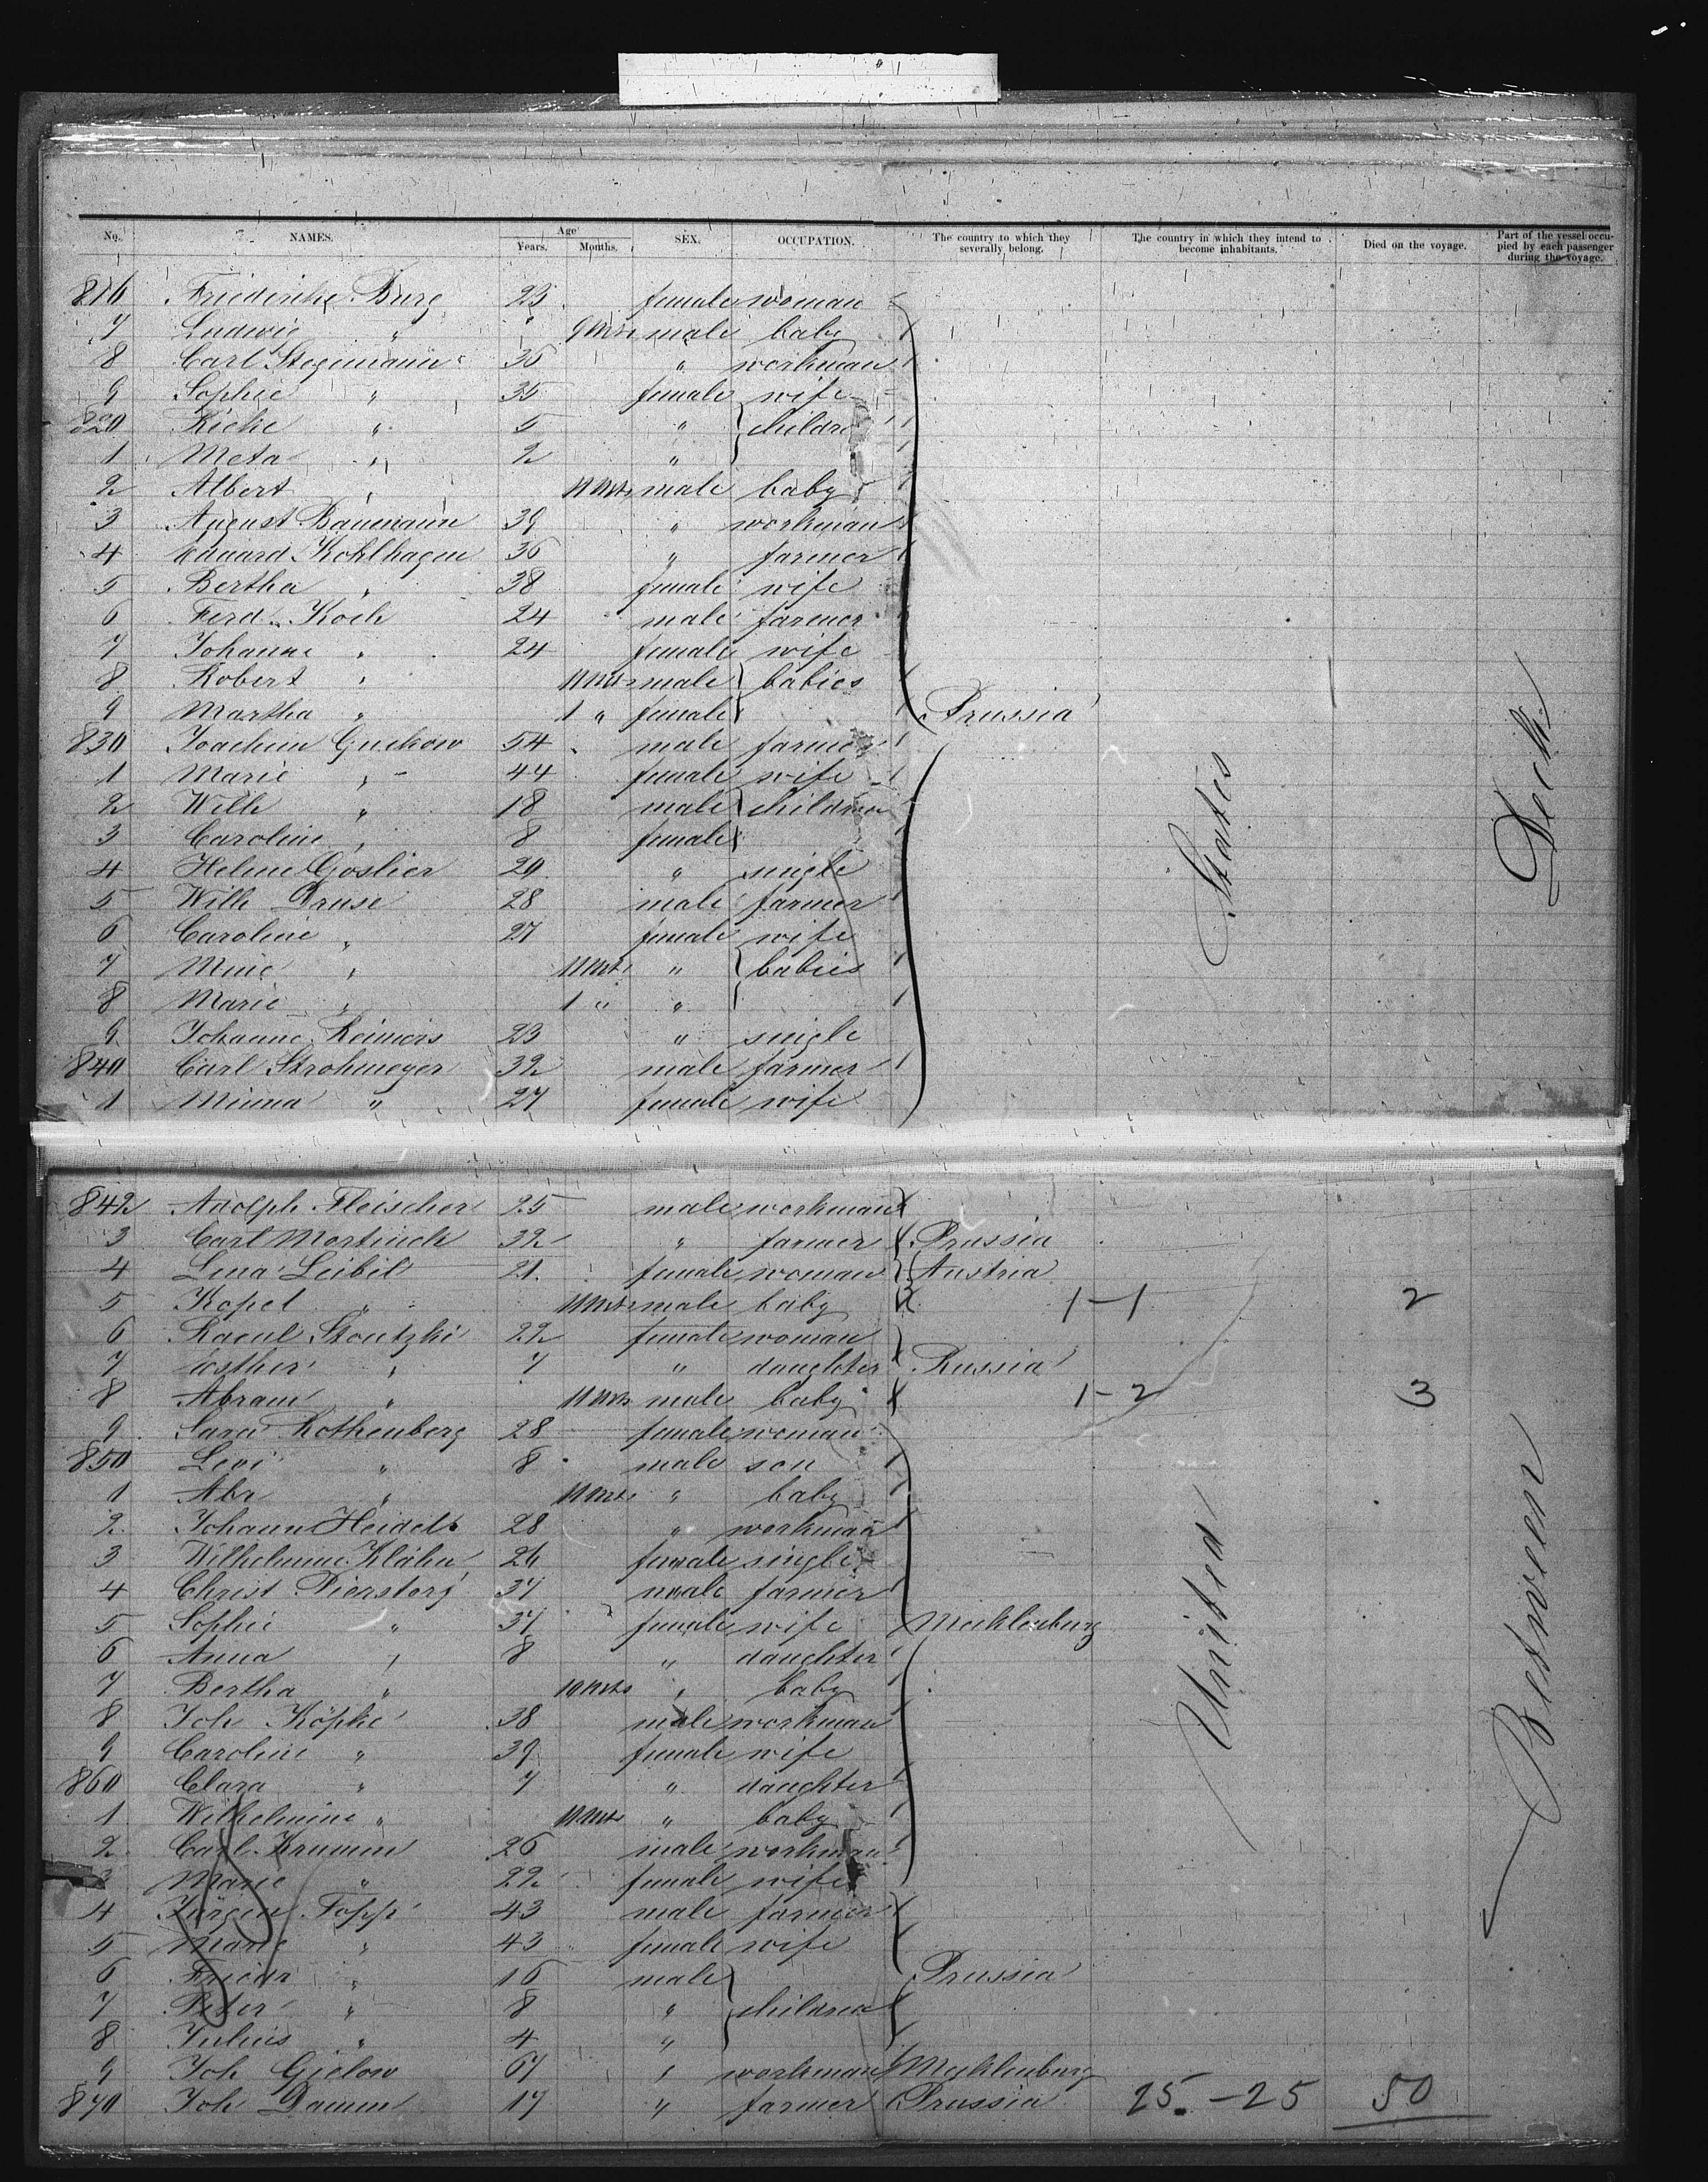 No. NAMES. Age Years. Months. SEX. OCCUPATION. The country to which they severally belong. The country in which they intend to become inhabitants. Died on the voyage. Part of the vessel occupied by each passenger during the voyage.
816 Friederike Burg 23 female woman
7 Ludwig " " 9 Mts male baby
8 Carl Stegemann 36 " workman
9 Sophie " 35 female wife
820 Rieke " 5 " } childre
1 Meta " 2 "
2 Albert " 11 Mts male baby
3 August Baumann 39 " workman
4 Eduard Kohlhagen 36 " farmer
5 Bertha " 38 female wife
6 Ferd. Koch 24 male farmer
7 Johanne " 24 female wife
8 Robert " 11 Mts male } babies
9 Martha " 1 " female Prussia
830 Joachim Guckow 54 male farmer
1 Marie " 44 female wife
2 Wilh " 18 male } children
3 Caroline " 8 female
4 Helene Goslier 20 " single
5 Wilh Druse 28 male farmer
6 Caroline " 27 female wife
7 Mine " 11 Mts " } babies
8 Marie " 1 " "
9 Johanne Reimers 23 " single
840 Carl Strohmeyer 32 male farmer
1 Minna " 27 female wife
States
Deck
842 Adolph Fleischer 25 male workman
3 Carl Mortinch 32 " farmer Prussia
4 Lena Leibel 21 female woman Austria
5 Kopel " 11 Mts male baby 1-1 2
6 Stoutzki 22 female woman
7 Esther " 7 " daughter Russia
8 Abram " 11 Mts male baby 1-2 3
9 Sara Rothenberg 28 female woman
850 Levi " 8 male son
1 Abr " 11 Mts " baby
2 Johann Heidelt 28 " workman
3 Wilhelmine Klähn 26 female single
4 Christ Pierstorf 37 male farmer
5 Sophie " 37 female wife Mecklenburg
6 Anna " 8 " daughter
7 Bertha " 10 Mts " baby
8 Joh Köpke 38 male workman
9 Caroline " 39 female wife
860 Clara " 7 " daughter
1 Wilhelmine " 11 Mts " baby
2 Carl Krumm 26 male workman
3 Marie " 22 female wife
4 Jürgen Topp 43 male farmer
5 Marie " 43 female wife
6 Friedr " 16 male Prussia
7 Peter " 8 " } children
8 Julius " 4 "
9 Joh Gielow 67 " workman Mecklenburg
870 Joh Damm 17 " farmer Prussia 25-25 50
United
Between